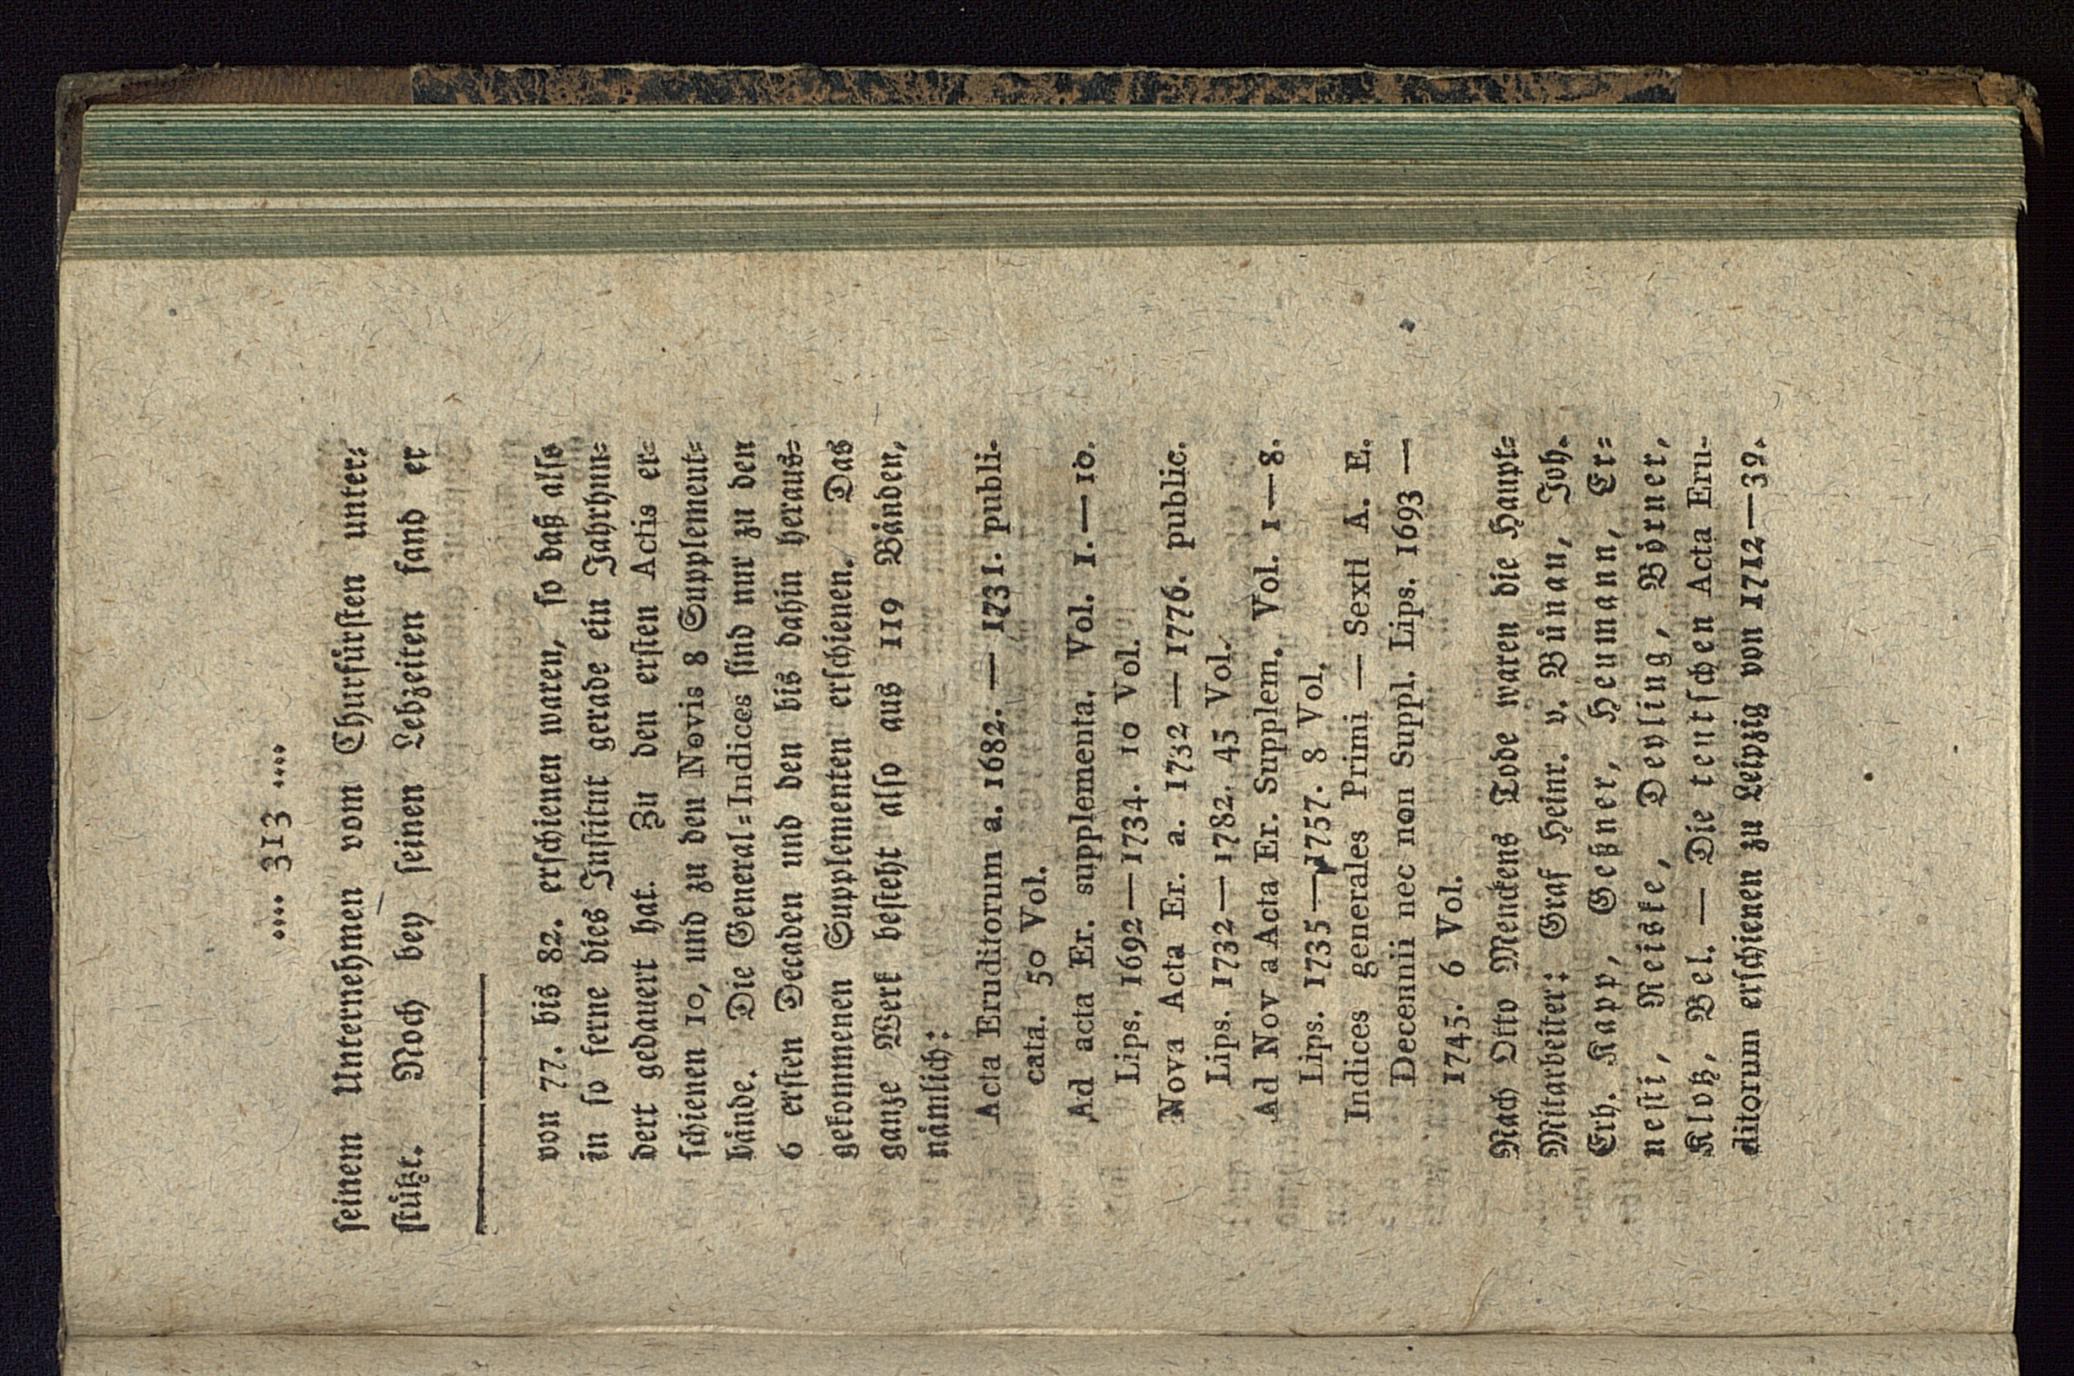 .... 313 ....
ſeinem Unternehmen vom Churfürſten unter⸗
ſtützt. Noch bey ſeinen Lebzeiten fand er
von 77. bis 82. erſchienen waren, ſo daß alſo
in ſo ferne dies Inſtitut gerade ein Jahrhun⸗
dert gedauert hat. Zu den erſten Actis er⸗
ſchienen 10, und zu den Novis 8 Supplement⸗
bände. Die General⸗Indices ſind nur zu den
6 erſten Decaden und den bis dahin heraus⸗
gekommenen Supplementen erſchienen. Das
ganze Werk beſteht alſo aus 119 Bänden,
nämlich:
Acta Eruditorum a. 1682. — 1731. publi-
cata. 50 Vol.
Ad acta Er. supplementa. Vol. 1.— 10.
Lips. 1692—1734. 10 Vol.
Nova Acta Er. a. 1732 — 1776. public.
Lips. 1732—1782. 45 Vol.
Ad Nov a Acta Er. Supplem. Vol. 1—8.
Lips. 1735—1757. 8 Vol.
Indices generales Primi — Sexti A. E.
Decennii nec non Suppl. Lips. 1693 —
1745. 6 Vol.
Nach Otto Menckens Tode waren die Haupt⸗
Mitarbeiter: Graf Heinr. v. Bünau, Joh.
Erh. Kapp, Geßner, Heumann, Er⸗
neſti, Reiske, Deyling, Börner,
Klotz, Bel. — Die teutſchen Acta Eru-
ditorum erſchienen zu Leipzig von 1712—39.